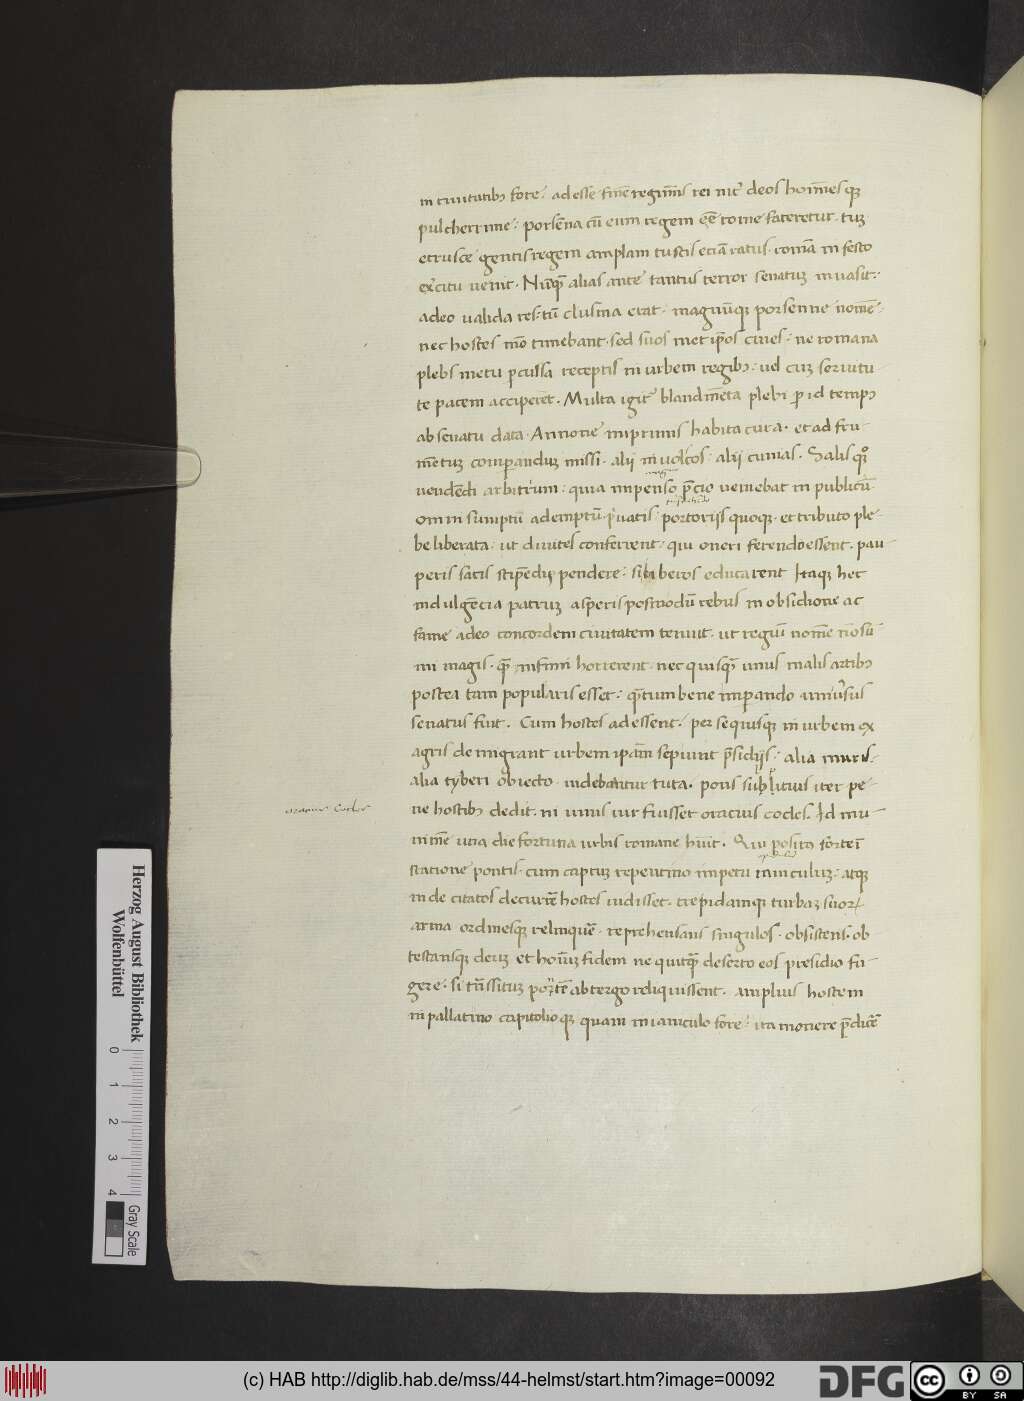 in ciuitatibꝫ fore. adesse finē regnīs rei int̄ deos hoīnesqꝫ
pulcherrime. porsēna cū eum regem eē rome fateretur. tuꝫ
etrusce gentis regem amplam tuscis eciā ratus. romā in festo
ex̄citu uenit. Nūqꝫ̄ alias ante tantus terror senatuꝫ inuasit:
adeo ualida res. tū clusina erat. magnūqꝫ porsenne nomē.
nec hostes mō timebant. sed suos met ip̄os ciues. ne romana
plebs metu pculsa receptis in urbem regibꝫ. uel cuꝫ seruitu
te pacem acciperet. Multa igit̄ blandimēta plebi p id tempꝫ
ab senatu data. Annone imprimis habita cura. et ad fru
mētuꝫ comparanduꝫ missi. alij in uolscos. alij cumas. Salis qꝫ
uendēdi arbitrium. quia impenso p̄cio ueniebat in publicū
omni sumptū ademptū. p̄uatis. portorijs quoqꝫ. et tributo ple
be liberata. ut diuites conferrent. qui oneri ferendo essent. pau
peris satis stipēdij pendere. si liberos educarent Itaqꝫ hec
indulgēcia patruꝫ asperis postmodū rebus in obsidione ac
fame adeo concordem ciuitatem tenuit. ut regiū nomē nō sū
mi magis. qꝫ̄ infimi horrerent. nec quisqꝫ̄ unus malis artibꝫ
postea tam popularis esset. qꝫ̄tum bene imperando. uniūsus
senatus fuit. Cum hostes adessent. per se quisqꝫ in urbem ex
agris demigrant urbem ipām sepiunt p̄sidijs. alia muris.
alia tyberi obiecto. uidebantur tuta. pons sublicius iter pe
ne hostibꝫ dedit. ni unus uir fuisset oracius cocles. Id mu
oracius Cocles
nimē illa die fortuna urbis romane huit. Qui posito forte ī
statione pontis. cum captuꝫ repentino impetu ianiculuꝫ. atqꝫ
inde citatos decurrē hostes uidisset. trepidamqꝫ turbaꝫ suorꝫ
arma ordinesqꝫ relinquē. reprehensans singulos. obsistens. ob
testansqꝫ deuꝫ et hoīuꝫ fidem ne quitqꝫ̄ deserto eos presidio fu
gere. si trāssituꝫ pontē ab tergo reliquissent. amplius hostem
in pallatino capitolio qꝫ quam in ianiculo fore. ita monere p̄dicē
Herzog August Bibliothek
Wolfenbüttel
0 1 2 3 4
Gray Scale
(c) HAB http://diglib.hab.de/mss/44-helmst/start.htm?image=00092
DFG
cc
BY SA